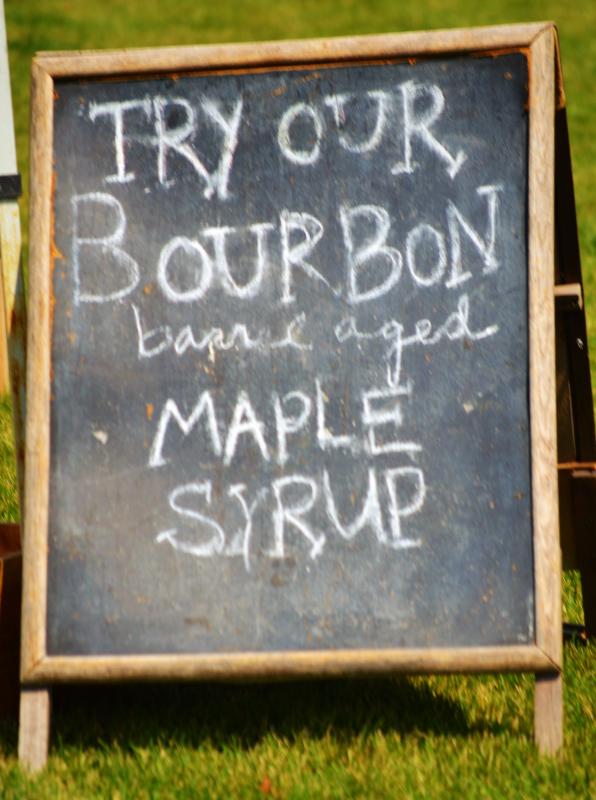 TRY OUR
BOURBON
barrel aged
MAPLE
SYRUP